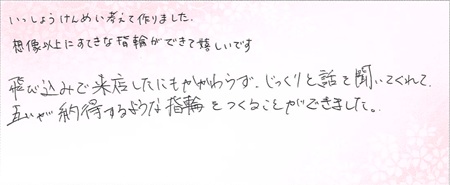 いっしょうけんめい考えて作りました.
想像以上にすてきな指輪ができて嬉しいです
飛び込みで来店したにもかかわらず、じっくりと話を聞いてくれて、
互いが納得するような指輪をつくることができました。